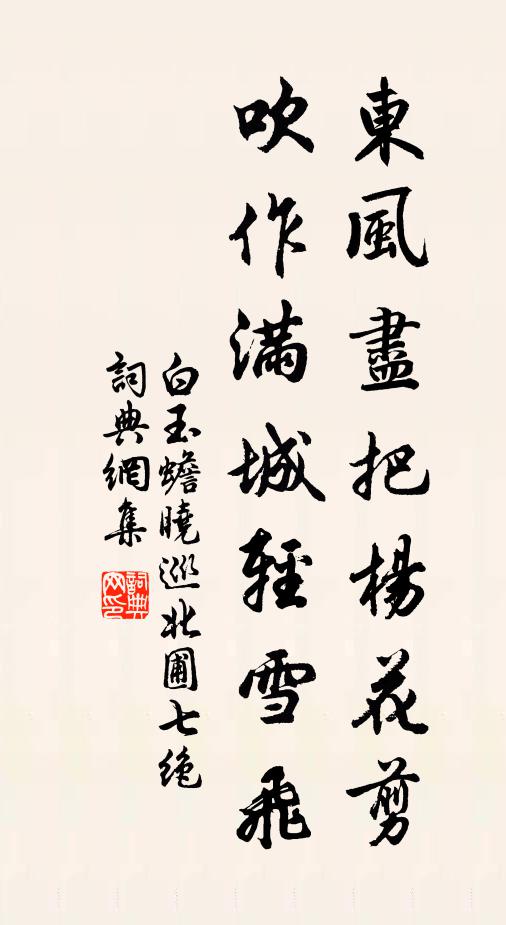 東風盡把楊花剪
吹作滿城輕雪飛
白玉蟾曉巡北圃七絶
詞典網集
詞典网印